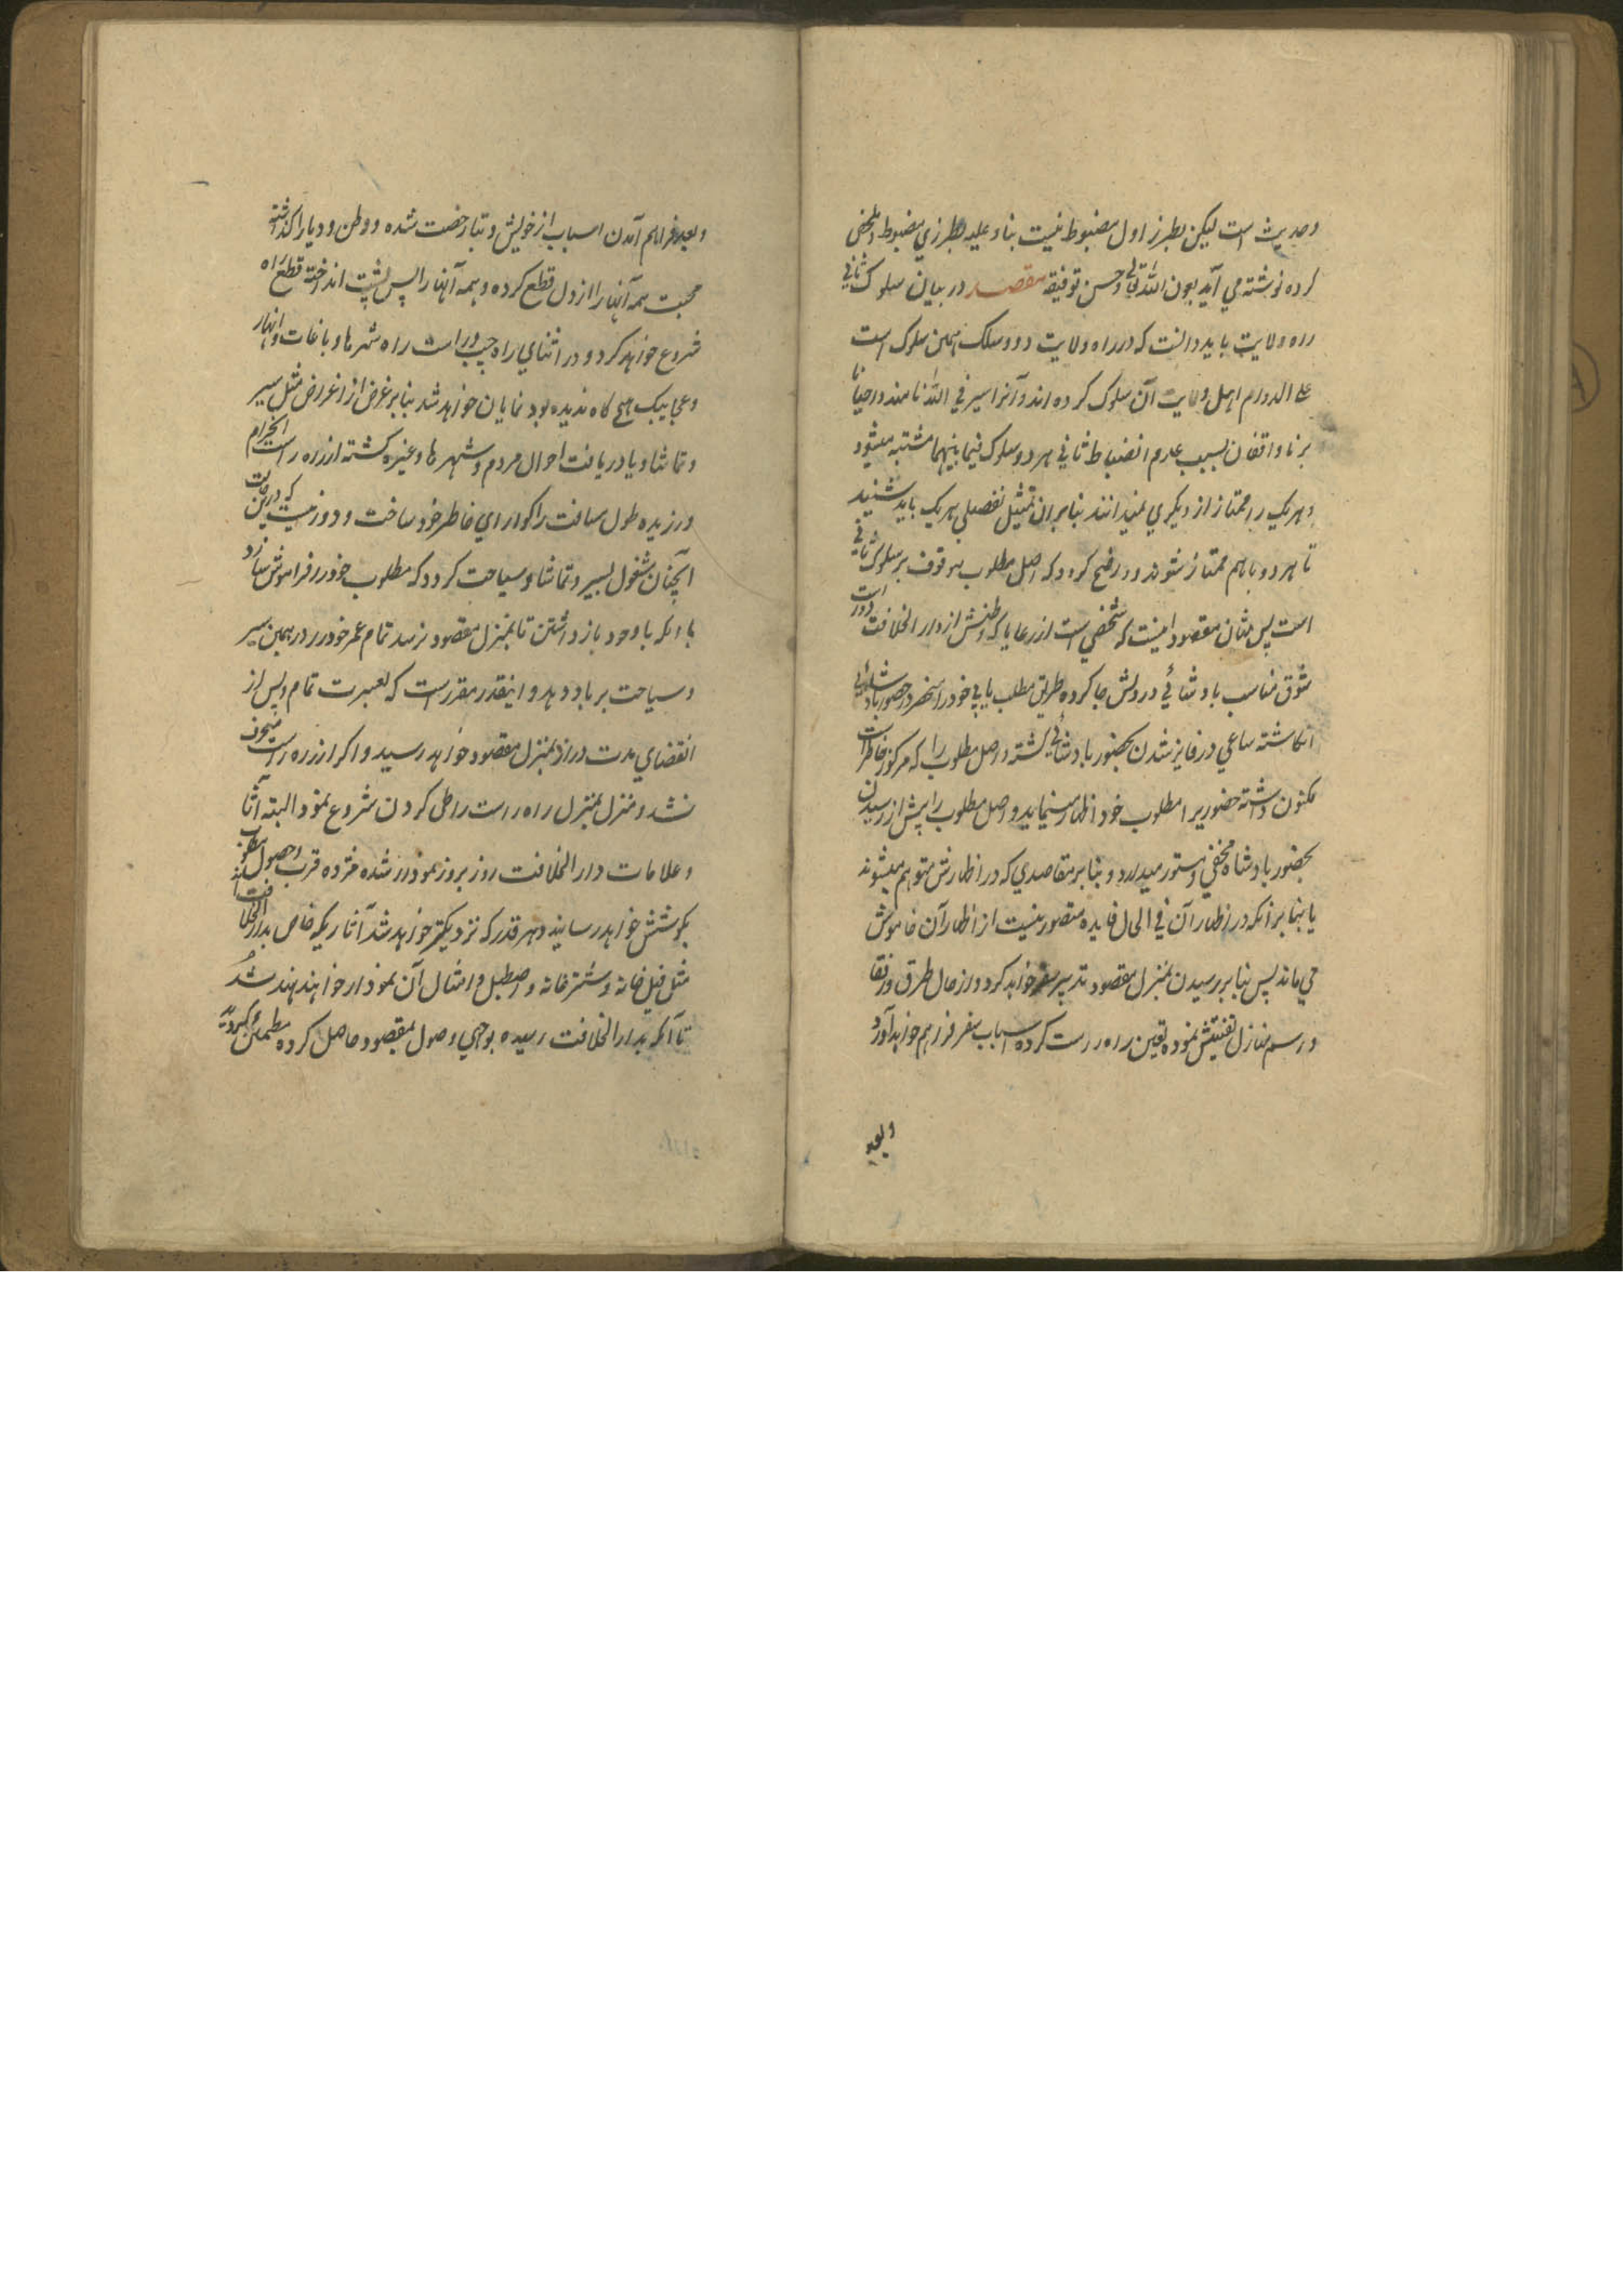 وحدیث است لیکن بطرز اول مضبوط نیست بناء علیه بطرزی مضبوط و ملخص
کرده نوشته می آید بعون الله تعالی و حسن توفیقه مقصد در بیان سلوک ثانی
راه ولایت باید دانست که در راه ولایت دو مسلک است همین سلوک است
علی الدوام اهل ولایت آن سلوک کرده اند و آنرا سیر فی الله نامند و احیانا
بر ناواقفان بسبب عدم انضباط ثانی هر دو سلوک فیما بینهما مشتبه میشود
و هر یک را ممتاز از دیگری نمیدانند بنابران تمثیل تفصیلی هر یک باید شنید
تا هر دو باهم ممتاز شوند و واضح گردد که اصل مطلوب موقوف بر سلوک ثانی
است پس مثال مقصود اینست که شخصی است از رعایا که وطنش از دار الخلافت دور است
شوق مناسب بادشاهی در دلش جا کرده طریق مطلب یابی خود را منحصر در حضور بادشاهی
انگاشته ساعی در فایز شدن بحضور بادشاهی گشته و اصل مطلوب را که مرکوز خاطر است
مکنون داشته حضوری را مطلوب خود اظهار مینماید و اصل مطلوب را پیش از رسیدن
بحضور بادشاه مخفی و مستور میدارد و بنابر مقاصدی که در اظهارش متوهم میشوند
یا بنابر آنکه در اظهار آن فی الحال فایده متصور نیست از اظهار آن خاموش
می ماند پس بنابر رسیدن بمنزل مقصود تدبیر سفر خواهد کرد و از حال طرق و رفقا
و رسم منازل تفتیش نموده تعین راه راست کرده اسباب سفر فراهم خواهد آورد
وبعد
وبعد فراهم آمدن اسباب از خویش و تبار رخصت شده و وطن و دیار را گذاشته
محبت همه آنها را از دل قطع کرده و همه آنها را پس پشت انداخته قطع راه
شروع خواهد کرد و در اثنای راه چپ و راست راه شهرها و باغات و انهار
و عجایبک هیچ گاه ندیده بود نمایان خواهد شد بنابر غرض از اغراض مثل سیر
و تماشا و یا دریافت احوال مردم و شهرها و غیره گشته از راه راست انحراف
ورزیده طول مسافت را گوارای خاطر خود ساخت و دور نیست که درین
آنچنان مشغول بسیر و تماشا و سیاحت گردد که مطلوب خود را فراموش سازد
با آنکه باوجود باز داشتن تا بمنزل مقصود نرسد تمام عمر خود را در همین سیر
و سیاحت برباد دهد و اینقدر مقرر است که بعسرت تمام و پس از
انقضای مدت دراز بمنزل مقصود خواهد رسید و اگر از راه راست منحرف
نشد و منزل بمنزل راه راست را طی کردن شروع نمود البته آثار
و علامات دار الخلافت روز بروز نمودار شده مژده قرب و حصول مطلوب
بگوشش خواهد رسانید و هر قدر که نزدیکتر خواهد شد آثاریکه خاص بدار الخلافت اند
مثل فیل خانه و شترخانه و اصطبل و امثال آن نمودار خواهند شد
تا آنکه بدار الخلافت رسیده بوجهی وصول بمقصود حاصل کرده مطمئن